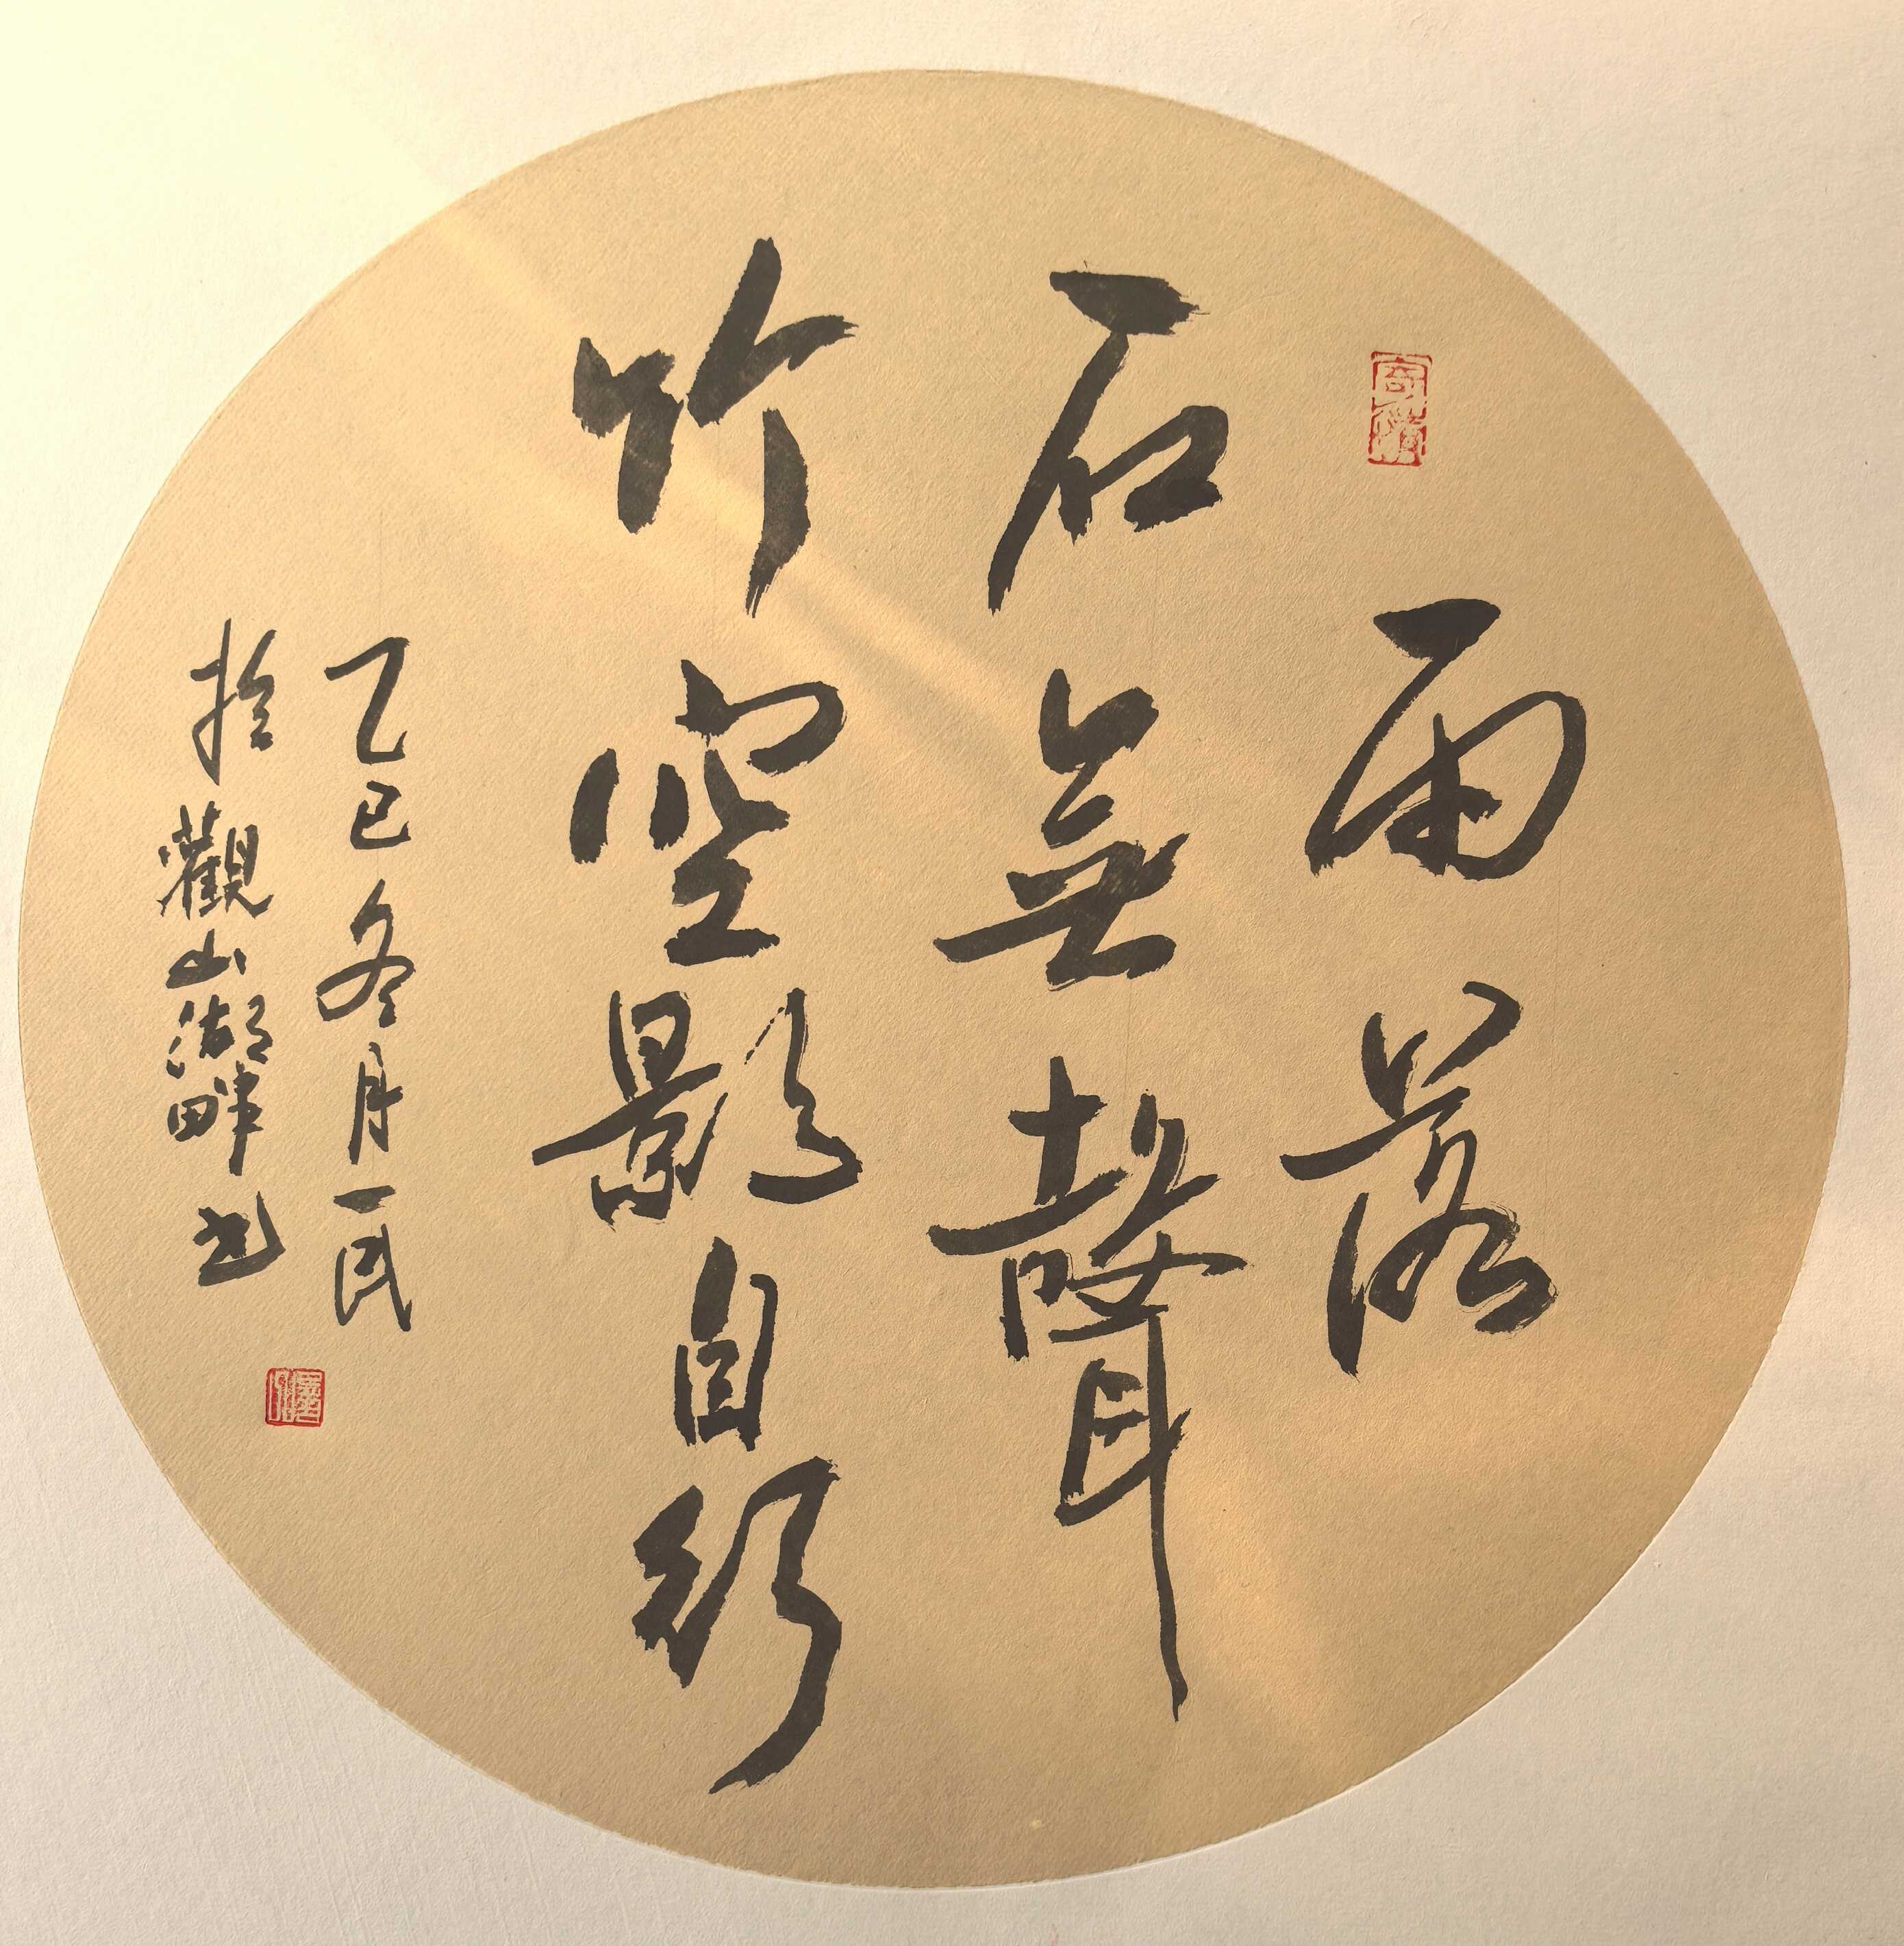 寄情
雨落
石無聲
竹空影自
乙巳冬月一民
於觀山湖畔书